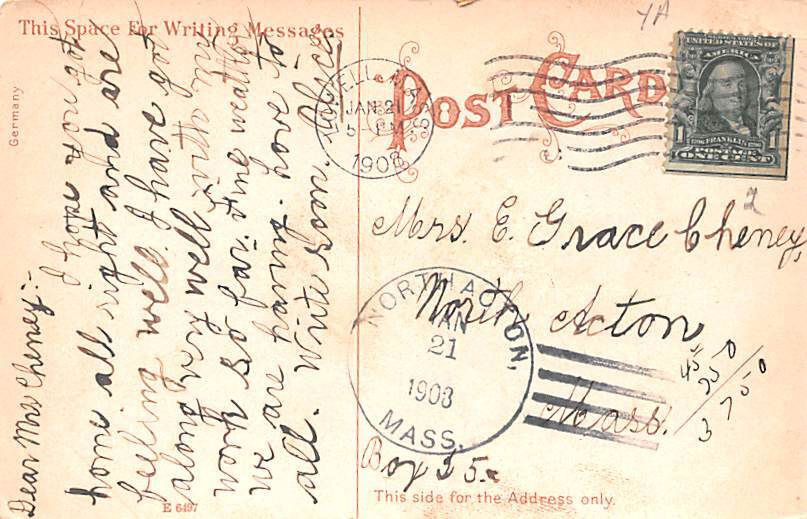 This Space For Writing Messages
Germany
Dear Mrs Cheney:-
I hope you got
home all right and are
feeling well. I have got
along very well with
my work so far. Fine weather
we are having. Love to
all. Write soon. Alice
E 6497
POST CARD
LOWELL, MASS.
JAN 21
5 - PM
1908
UNITED STATES OF
AMERICA
1 FRANKLIN 1
POSTAGE
ONE CENT
YA
2
Mrs. E. Grace Cheney,
North Acton
Mass.
Box 55.
NORTH ACTON,
JAN
21
1908
MASS.
This side for the Address only.